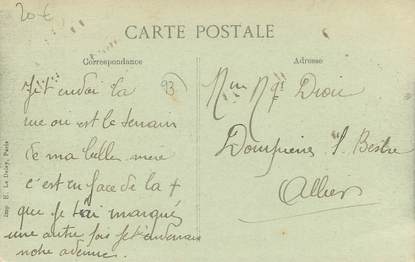 20€
CARTE POSTALE
Correspondance
Adresse
93
Je t'envoi la
vue ou est le terrain
de ma belle mère
c'est en face de la +
que je t'ai marqué
une autre fois je t'enverrais
notre avenue.
Dompierre S. Besbre
Allier
Imp. E. Le Deley, Paris